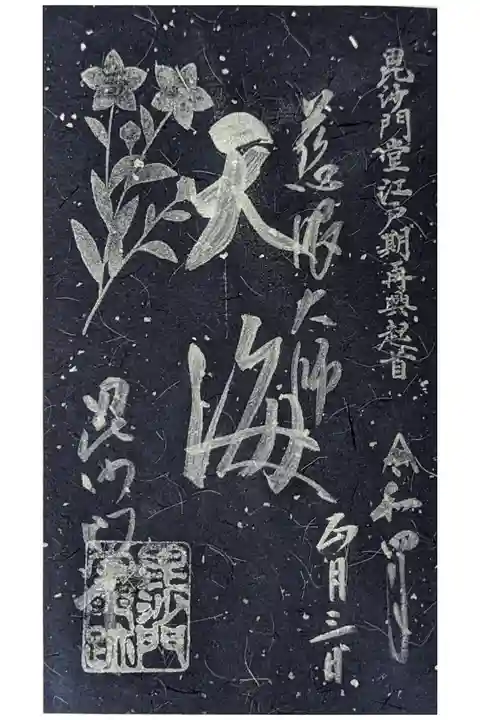 毘沙門堂江戸期再興起首
令和四年
月三日
慈眼大師
天海
毘沙門堂
毘沙門
堂跡